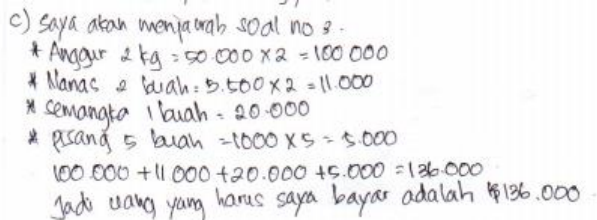 c) saya akan menjawab soal no 3.
* Anggur 2 kg = 50.000 x 2 = 100 000
* Nanas 2 buah = 5.500 x 2 = 11.000
* semangka 1 buah = 20.000
* pisang 5 buah = 1000 x 5 = 5.000
100.000 + 11 000 + 20.000 + 5.000 = 136.000
Jadi uang yang harus saya bayar adalah 136.000